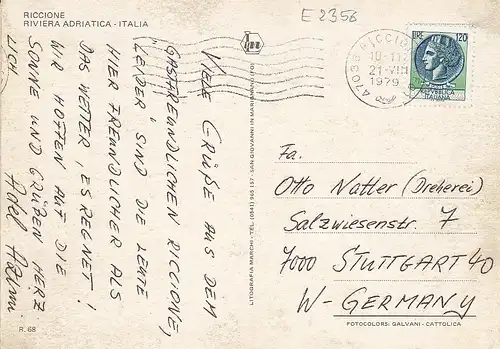 RICCIONE
RIVIERA ADRIATICA - ITALIA
E 2356
47036 RICCIONE
10-11
21-VIII
1979
LIRE 120
REPUBBLICA
ITALIANA
VIELE GRÜßE AUS DEM
GASTFREUNDLICHEN RICCIONE,
"LEIDER" SIND DIE LEUTE
HIER FREUNDLICHER ALS
DAS WETTER, ES REGNET!
WIR HOFFEN AUF DIE
SONNE UND GRÜßEN HERZ
LICH
LITOGRAFIA MARCHI - TEL. (0541) 965 157 - SAN GIOVANNI IN MARIGNANO (FO)
Fa.
Otto Natter (Dreherei)
Salzwiesenstr. 7
7000 STUTTGART 40
W-GERMANY
R. 68
FOTOCOLORS: GALVANI - CATTOLICA